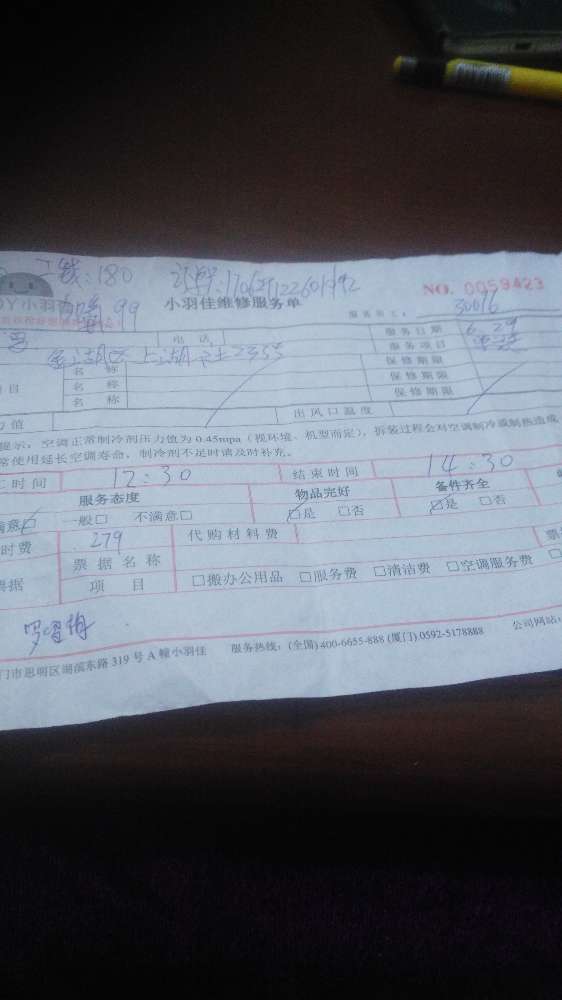 工钱:180
NO. 0059423
DY小羽
99
小羽佳维修服务单
服务员工:
30016
电话
服务日期
6.29
服务项目
湖区 上湖 2355
名称
保修期限
项目
名称
保修期限
名称
保修期限
力值
出风口温度
提示:空调正常制冷剂压力值为0.45mpa(视环境、机型而定),拆装过程会对空调制冷或制热造成
常使用延长空调寿命,制冷剂不足时请及时补充。
工时间
12:30
结束时间
14:30
服务态度
物品完好
备件齐全
满意☑ 一般□ 不满意□
☑是 □否
☑是 □否
时费
279
代购材料费
票据
票据名称
项目
□搬办公用品 □服务费 □清洁费 □空调服务费
门市思明区湖滨东路319号A幢小羽佳
服务热线:(全国)400-6655-888 (厦门)0592-5178888
公司网站: